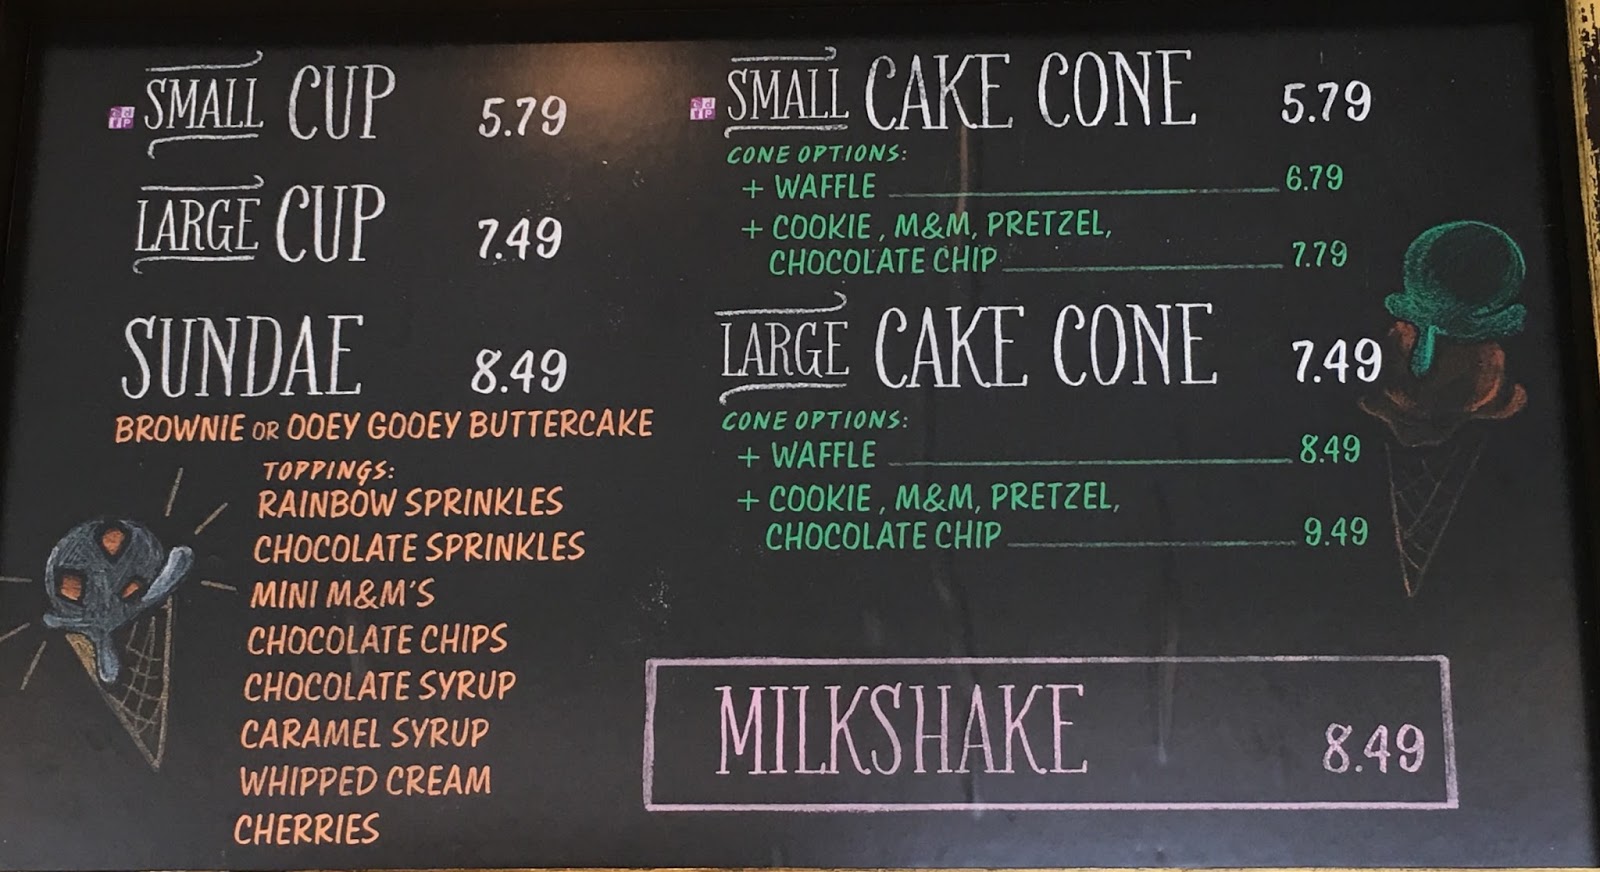 SMALL CUP 5.79
LARGE CUP 7.49
SUNDAE 8.49
BROWNIE OR OOEY GOOEY BUTTERCAKE
TOPPINGS:
RAINBOW SPRINKLES
CHOCOLATE SPRINKLES
MINI M&M'S
CHOCOLATE CHIPS
CHOCOLATE SYRUP
CARAMEL SYRUP
WHIPPED CREAM
CHERRIES
SMALL CAKE CONE 5.79
CONE OPTIONS:
+ WAFFLE 6.79
+ COOKIE, M&M, PRETZEL,
CHOCOLATE CHIP 7.79
LARGE CAKE CONE 7.49
CONE OPTIONS:
+ WAFFLE 8.49
+ COOKIE, M&M, PRETZEL,
CHOCOLATE CHIP 9.49
MILKSHAKE 8.49